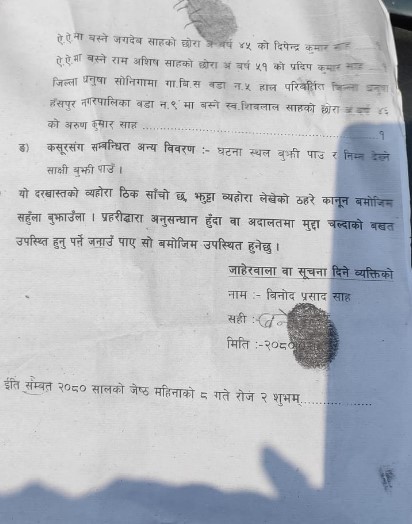 ऐ.ऐ.मा बस्ने जगदेव साहको छोरा अं.बर्ष ४५ को दिपेन्द्र कुमार साह १
ऐ.ऐ.मा बस्ने राम अशिष साहको छोरा अं बर्ष ५१ को प्रदिप कुमार साह १
जिल्ला धनुषा सोनिगामा गा.बि.स वडा न.५ हाल परिवर्तित जिल्ला धनुषा
हंसपुर नगरपालिका वडा न.९ मा बस्ने स्व.शिवलाल साहको छोरा अं बर्ष ४६
को अरुण कुमार साह ........................................ १
ङ) कसूरसंग सम्बन्धित अन्य विवरण :- घटना स्थल बुझी पाउ र निम्न देख्ने
साक्षी बुझी पाउँ ।
यो दरखास्तको व्यहोरा ठिक साँचो छ, झुठ्ठा व्यहोरा लेखेको ठहरे कानून बमोजिम
सहुँला बुझाउँला । प्रहरीद्धारा अनुसन्धान हुँदा वा अदालतमा मुद्दा चल्दाको बखत
उपस्थित हुनु पर्ने जनाउँ पाए सो बमोजिम उपस्थित हुनेछु ।
जाहेरवाला वा सूचना दिने व्यक्तिको
नाम :- बिनोद प्रसाद साह
सही :-
मिति :-२०८०
ईति सम्वत २०८० सालको जेष्ठ महिनाको ८ गते रोज २ शुभम्..................